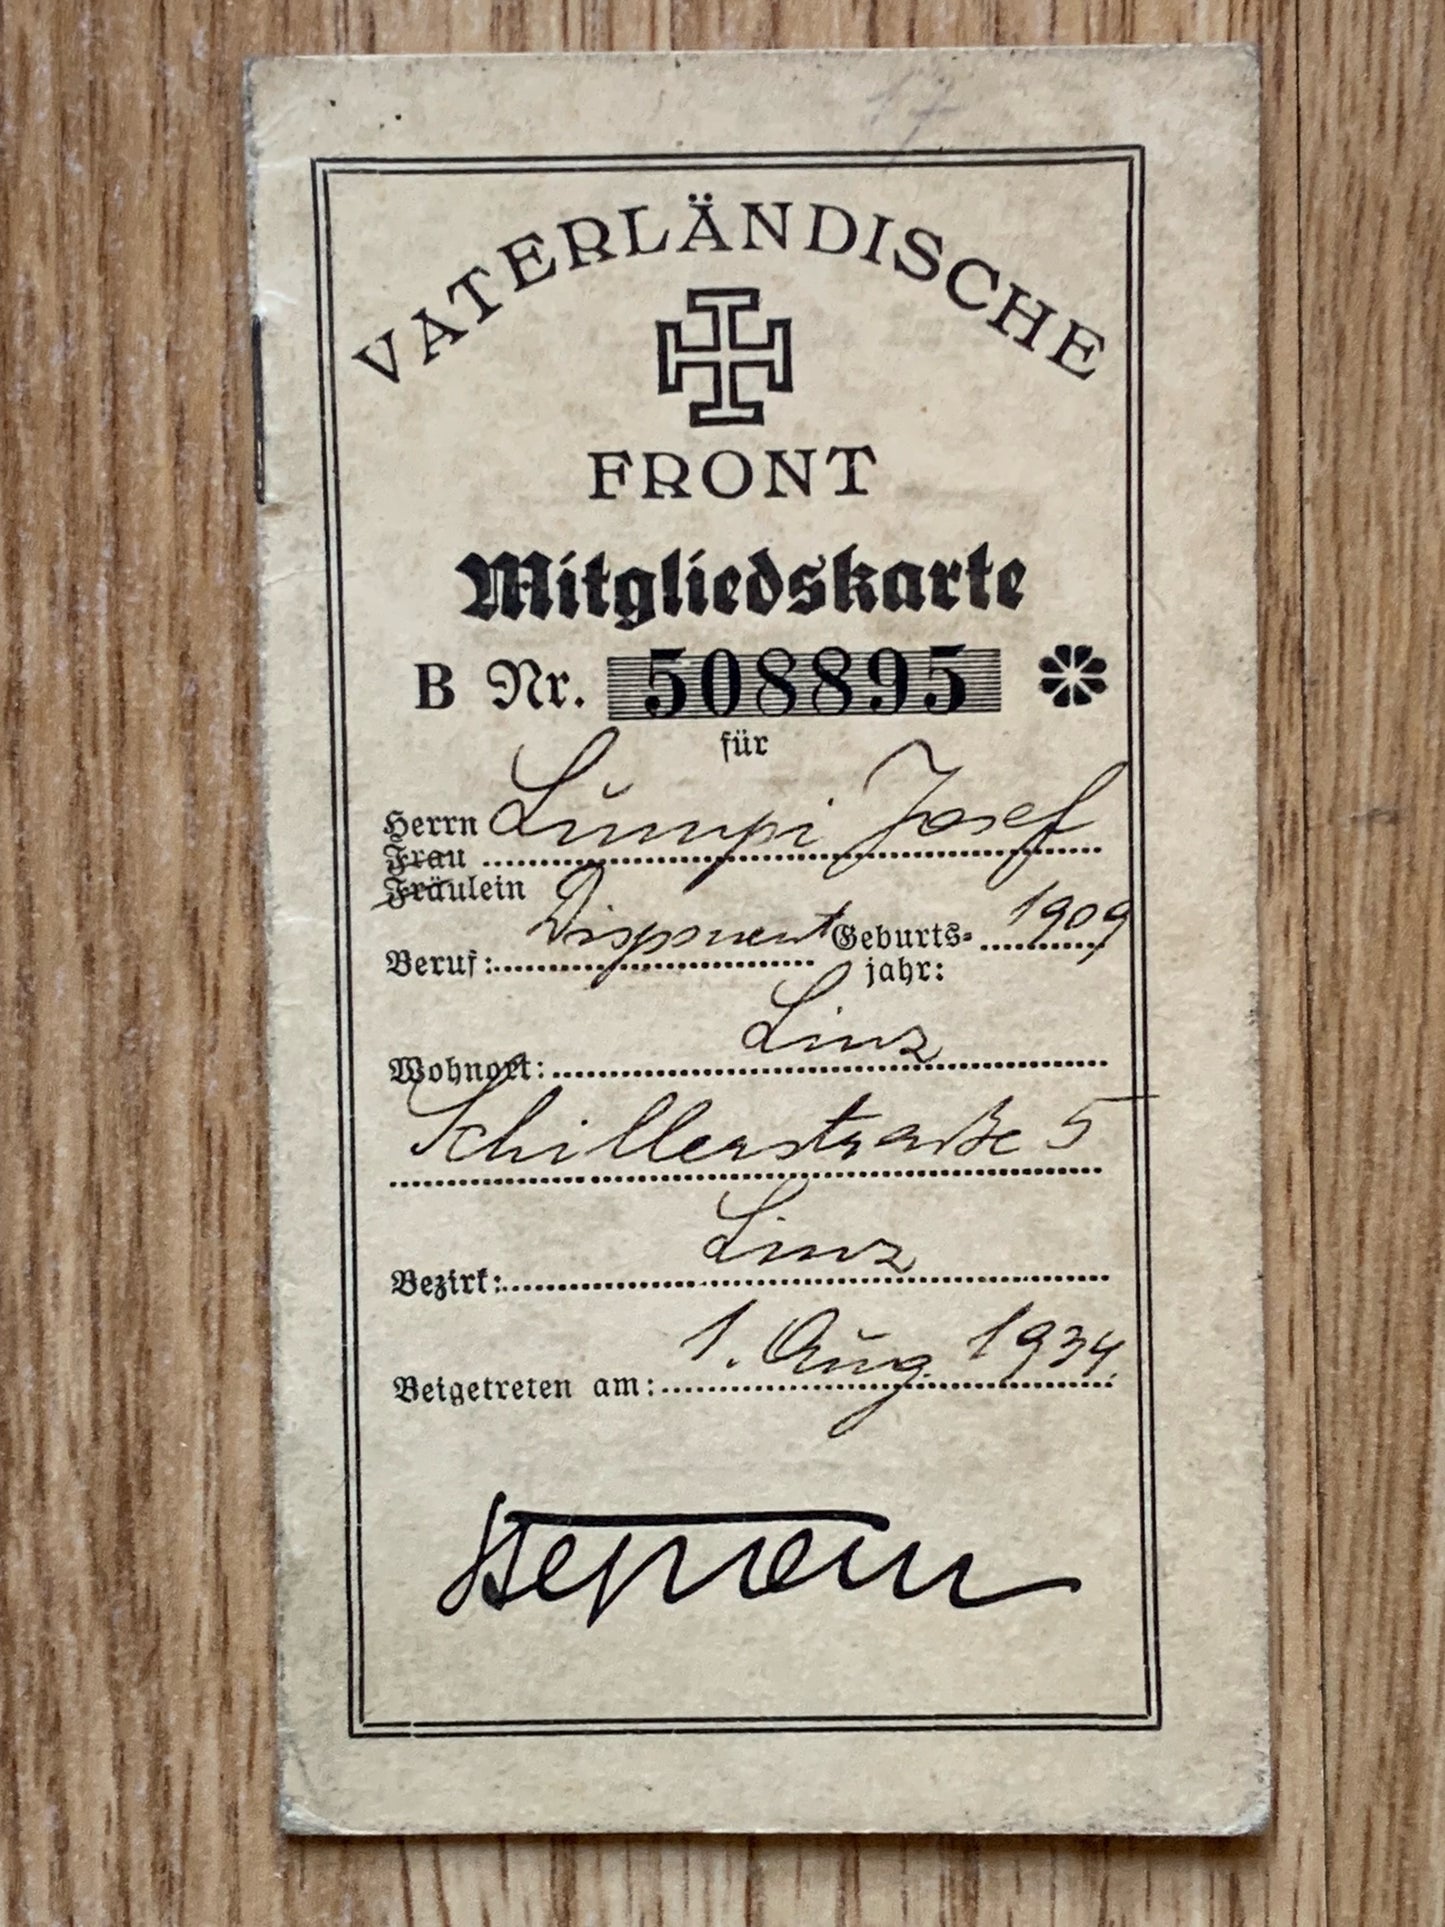 VATERLÄNDISCHE
FRONT
Mitgliedskarte
B Nr. 508895
für
Herrn Lumpi Josef
Frau
Fräulein
Beruf: Disponent Geburts-
jahr: 1909
Wohnort: Linz
Schillerstraße 5
Bezirk: Linz
Beigetreten am: 1. Aug. 1934.